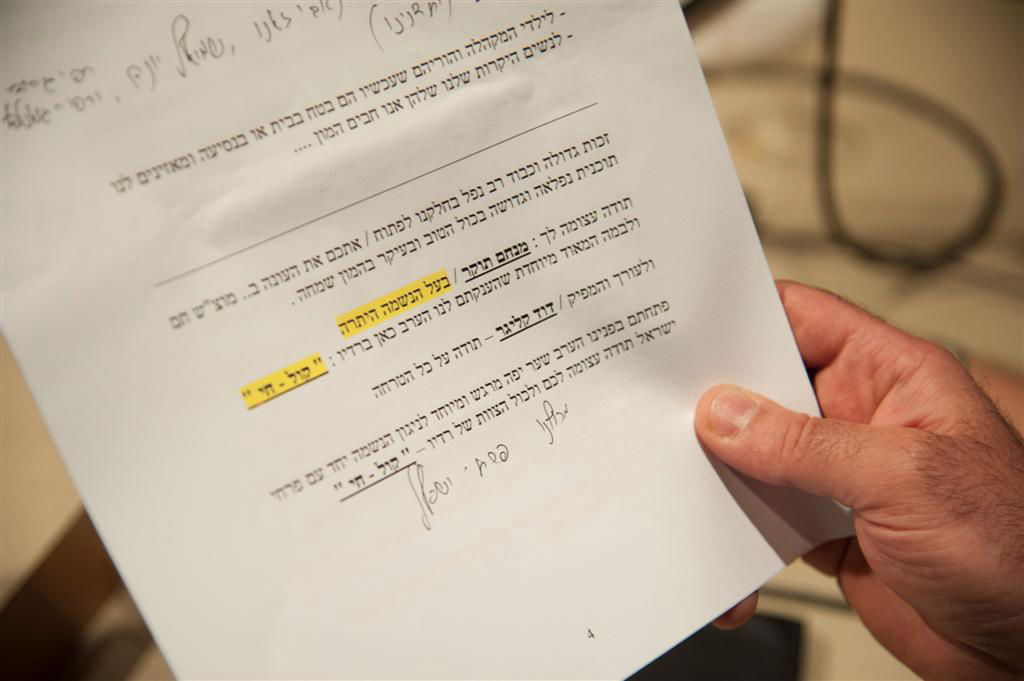 - לילדי המקהלה והוריהם שעכשיו הם בטח בבית או בנסיעה ומאזינים לנו
- לנשים היקרות שלנו שלהן אנו חבים המון ....
זכות גדולה וכבוד רב נפל בחלקנו לפתוח / אתכם את העונה ב.. מוצ״ש תם
תוכנית נפלאה וגדושה בכול הטוב ובעיקר בהמון שמחה.
תודה עצומה לך : מנחם תוקר / בעל הנשמה היתרה
ולבמה המאוד מיוחדת שהענקתם לנו הערב כאן ברדיו : " קול - חי "
ולעורך והמפיק / דוד קליגר – תודה על כל הטרחה
פתחתם בפנינו הערב שער יפה מרגש ומיוחד לניגון הנשמה יחד עם פרחי
ישראל תודה עצומה לכם ולכול הצוות של רדיו – " קול - חי "
פרחי ישראל
4